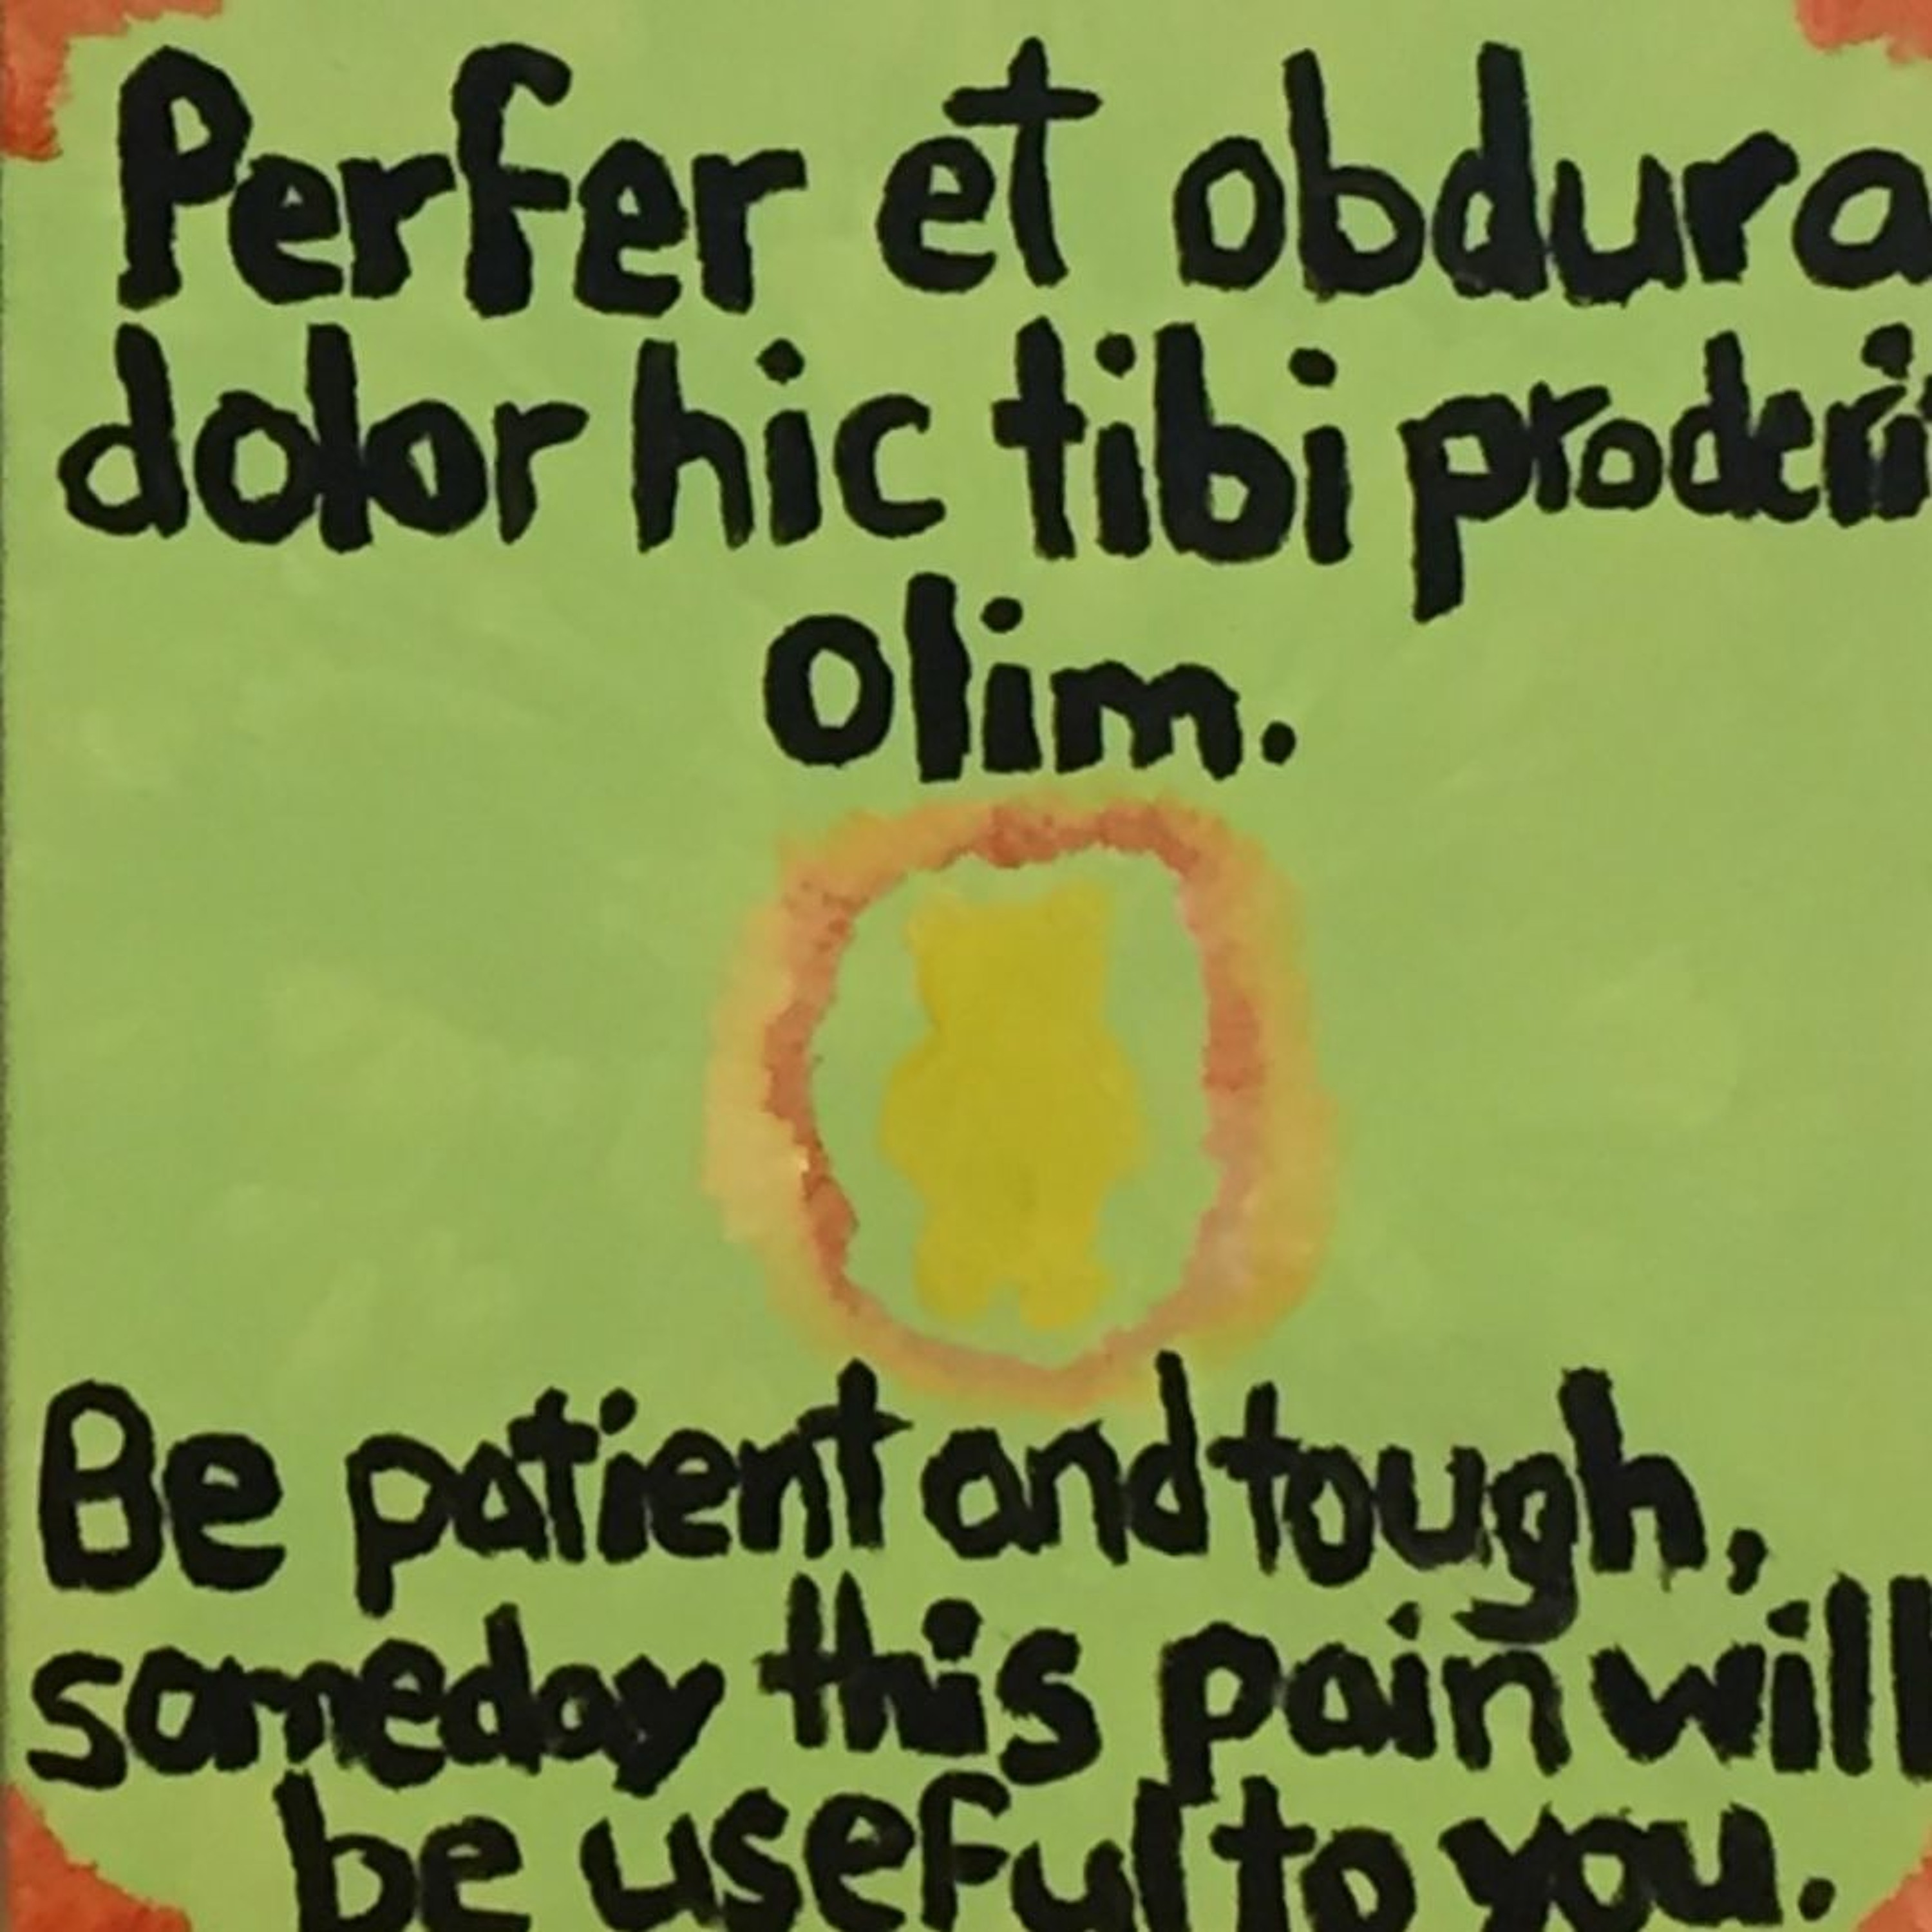 Perfer et obdura
dolor hic tibi proderit
Olim.
Be patient and tough,
someday this pain will
be useful to you.